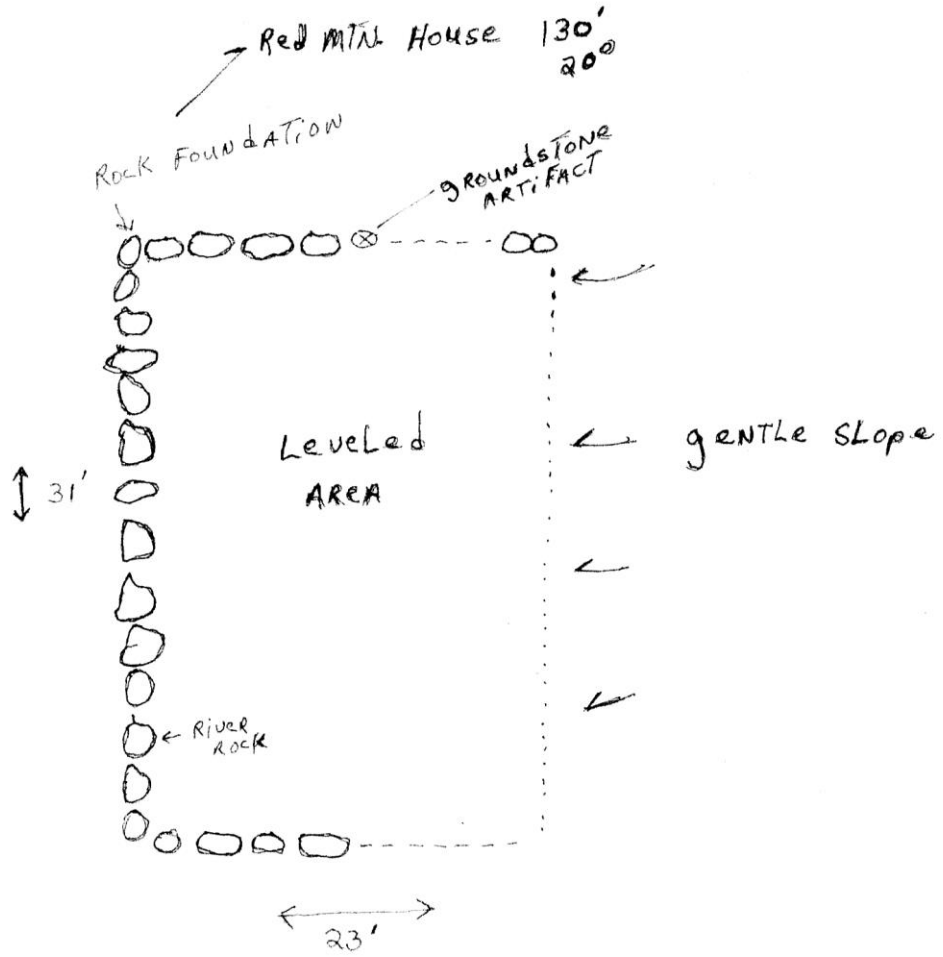 Red MTN. House 130'
20°
ROCK FOUNdATION
gROUNdSTONE
ARTiFACT
LeveLed
AReA
gENTLe SLope
31'
RiveR
ROCK
23'